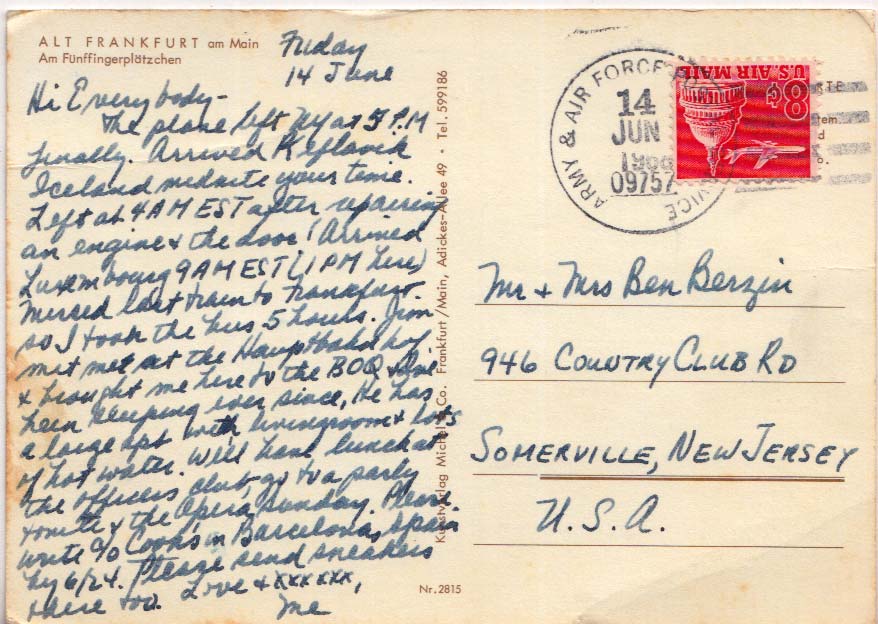 ALT FRANKFURT am Main
Am Fünffingerplätzchen
Friday
14 June
Hi Everybody-
The plane left NY at 5 P.M
finally. Arrived Keflavik
Iceland midnite your time.
Left at 4 AM EST after repairing
an engine & the door! Arrived
Luxembourg 9 AM EST (1 PM here)
Missed last train to Frankfurt
so I took the bus, 5 hours. Jim
met me at the Hauptbahnhof
& brought me here to the BOQ & I've
been sleeping ever since. He has
a large apt with livingroom & lots
of hot water. Will have lunch at
the officers club, go to a party
tonite & the Opera Sunday. Please
write c/o Cook's in Barcelona, Spain
by 6/24. Please send sneakers
there too. Love & xxxxxx,
Me
Kunstverlag Michel & Co. Frankfurt/Main, Adickes-Allee 49 • Tel. 599186
Nr. 2815
ARMY & AIR FORCE POSTAL SERVICE
14
JUN
09757
U.S. AIR MAIL
8¢
Mr + Mrs Ben Berzin
946 COUNTRY CLUB RD
SOMERVILLE, NEW JERSEY
U.S.A.